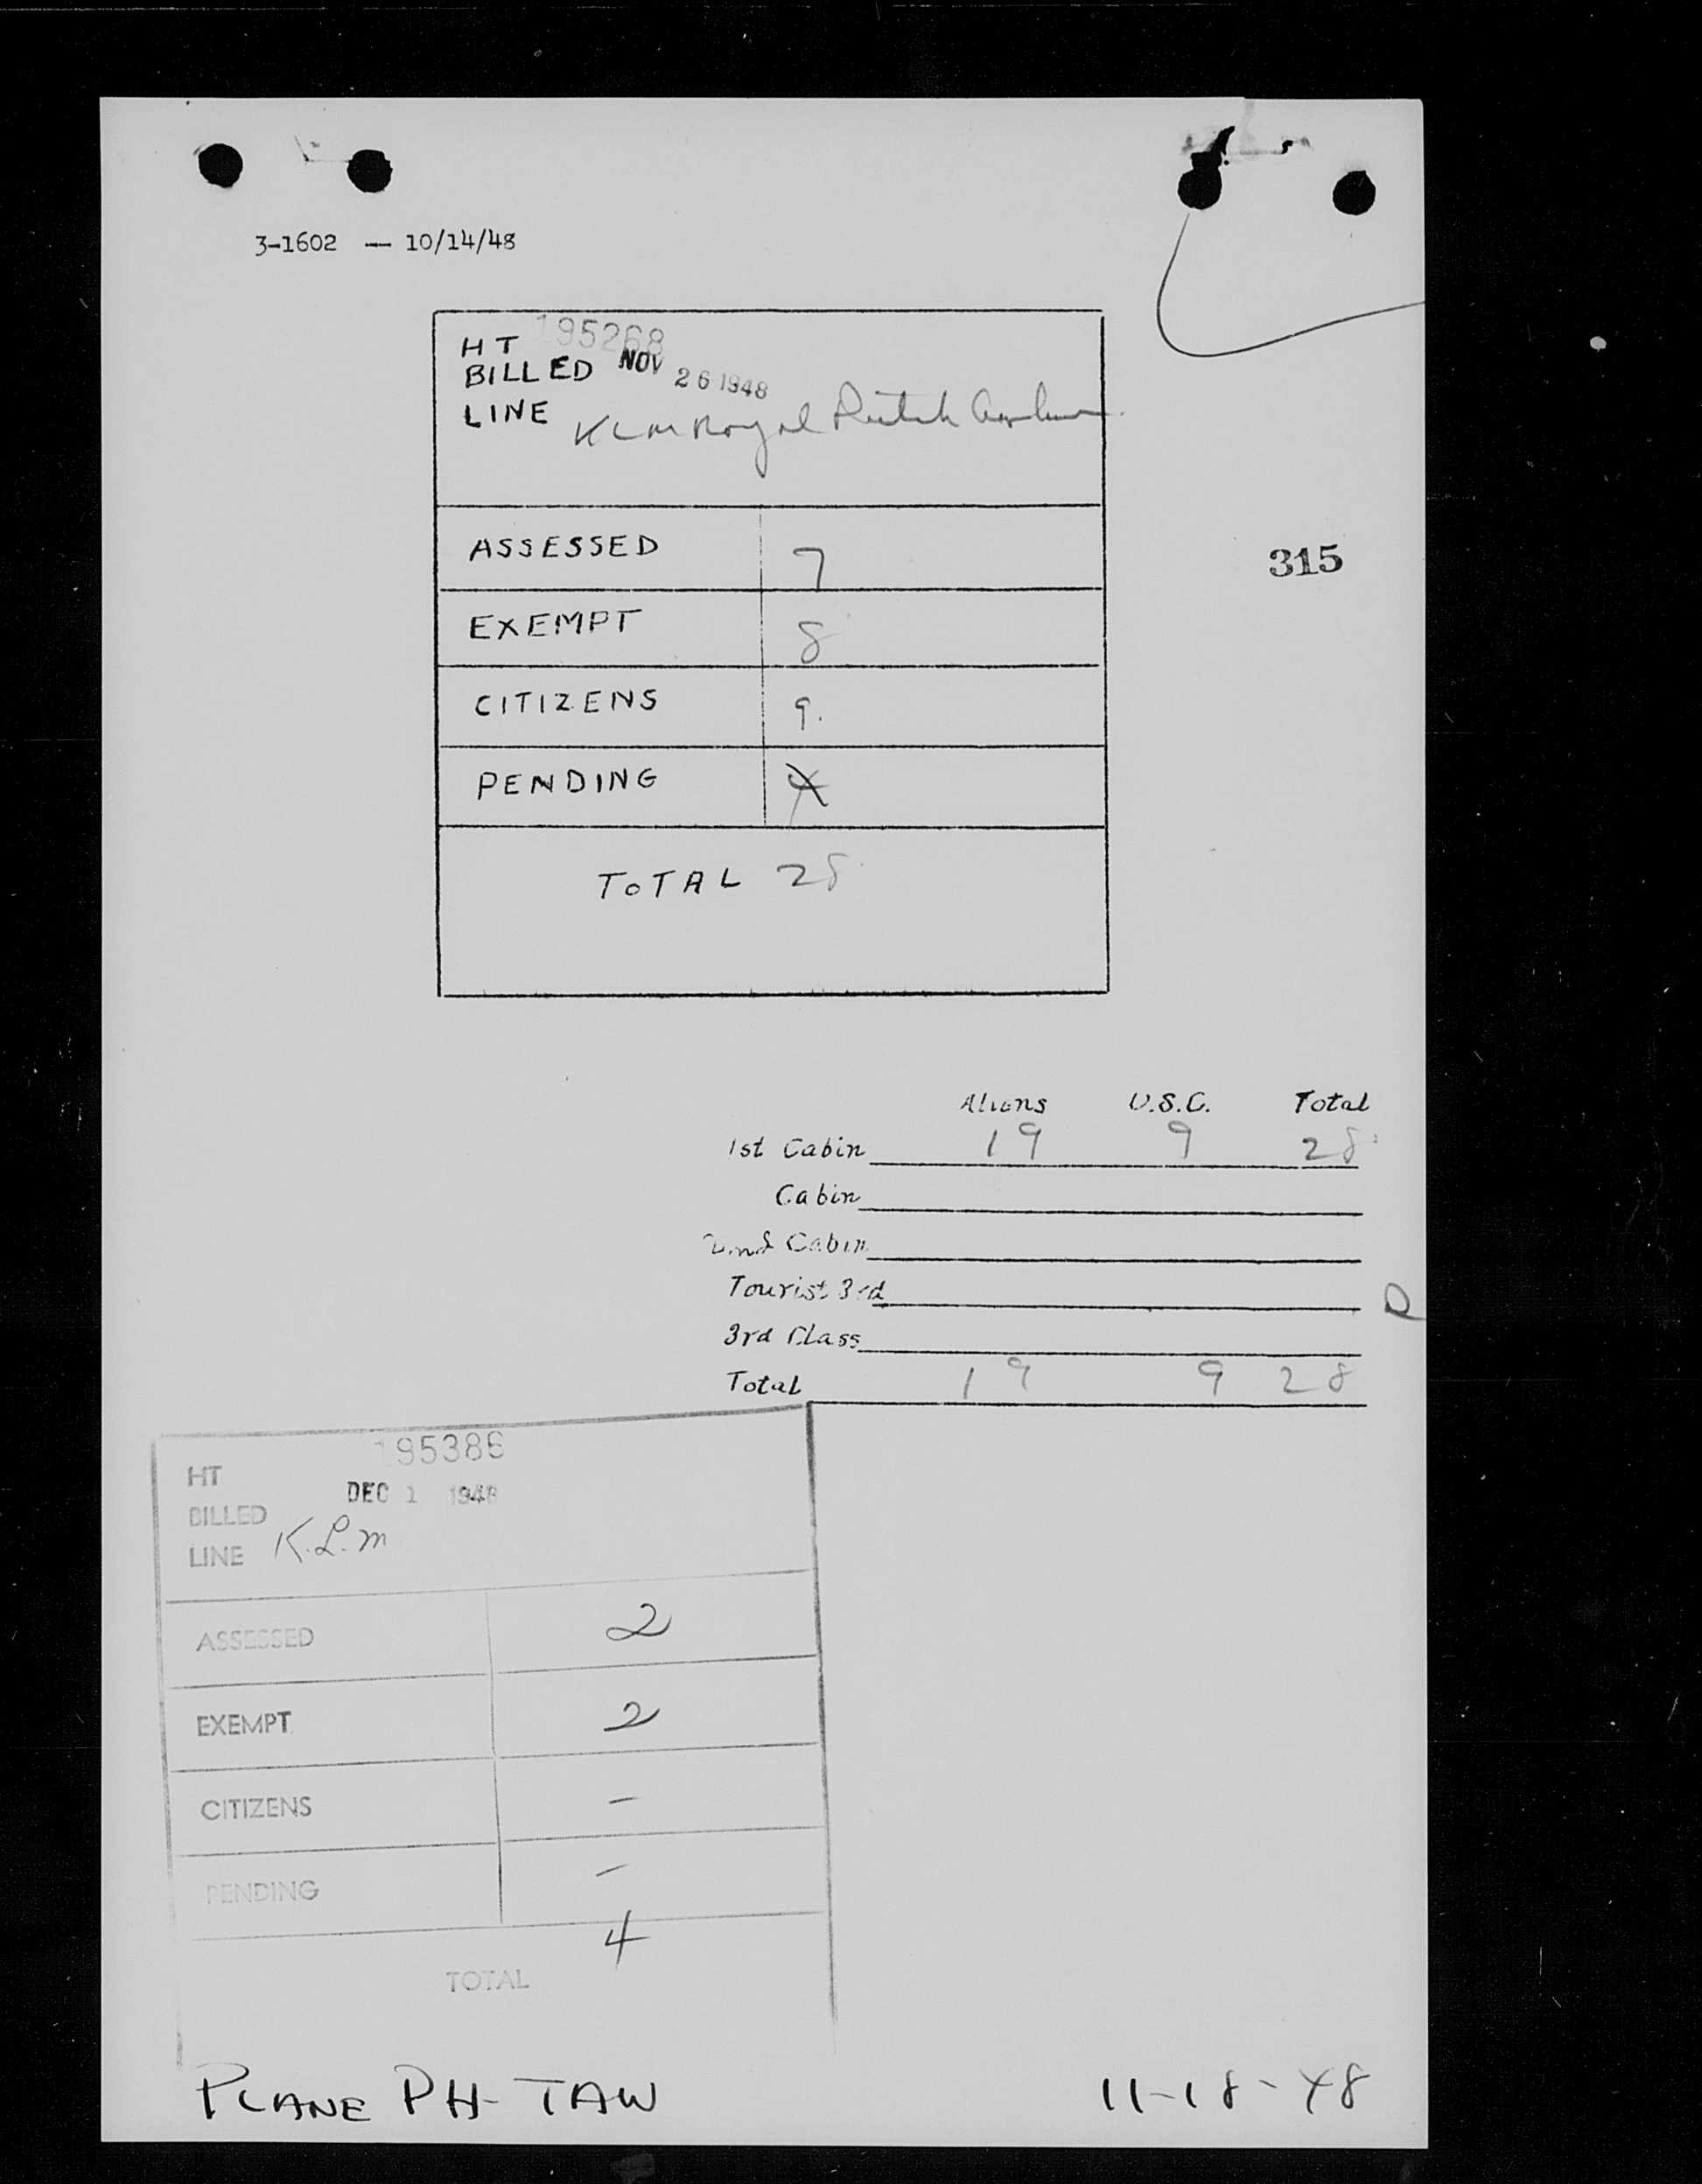 3-1602 — 10/14/48
195268
HT
BILLED NOV 26 1948
LINE KLM Royal Dutch Airlines
315
ASSESSED 7
EXEMPT 8
CITIZENS 9.
PENDING 4
TOTAL 28
Aliens U.S.C. Total
1st Cabin 19 9 28
Cabin
2nd Cabin
Tourist 3rd
D
3rd Class
Total 19 9 28
195386
HT
DEC 1 1948
BILLED
LINE K.L.M
ASSESSED 2
EXEMPT 2
CITIZENS –
PENDING –
4
TOTAL
PLANE PH-TAW 11-18-48